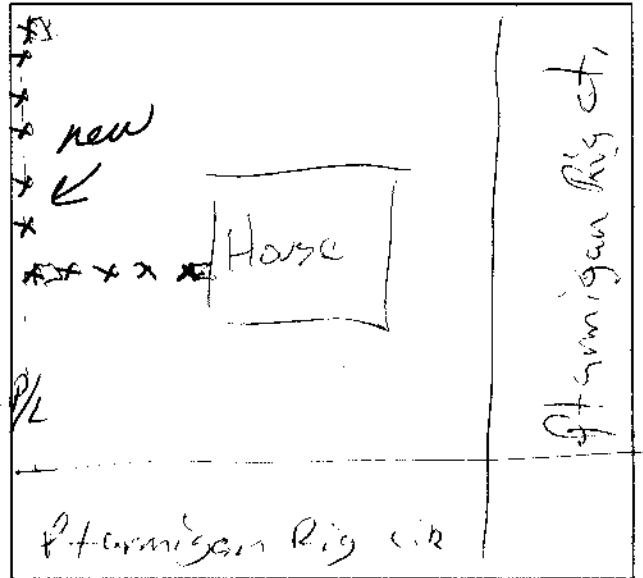 new
House
Ptarmigan Rig ct,
P/L
Ptarmigan Rig cir